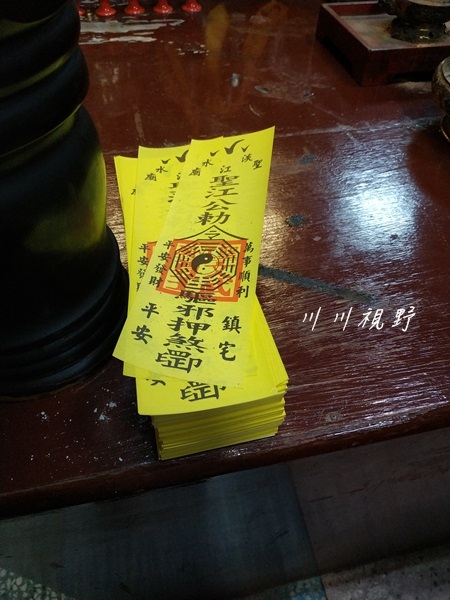 淡水
聖江廟
聖江公勅令
驅邪押煞
萬事順利
鎮宅
平安發財
平安
川川視野